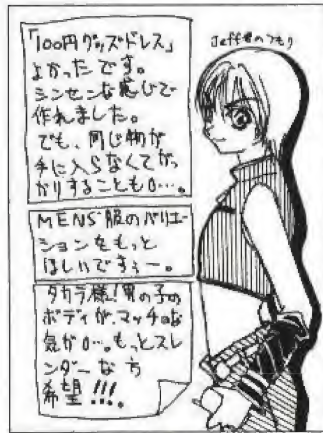 「100円グッズドレス」
よかったです。
シンセンな感じで
作れました。
でも、同じ物が
手に入らなくてがっ
かりすることも0…。
MENS'服のバリエー
ションをもっと
ほしいですぅー。
タカラ様!男の子の
ボディが、マッチョな
気が0…。もっとスレ
ンダーな方
希望!!!。
Jeff君のつもり